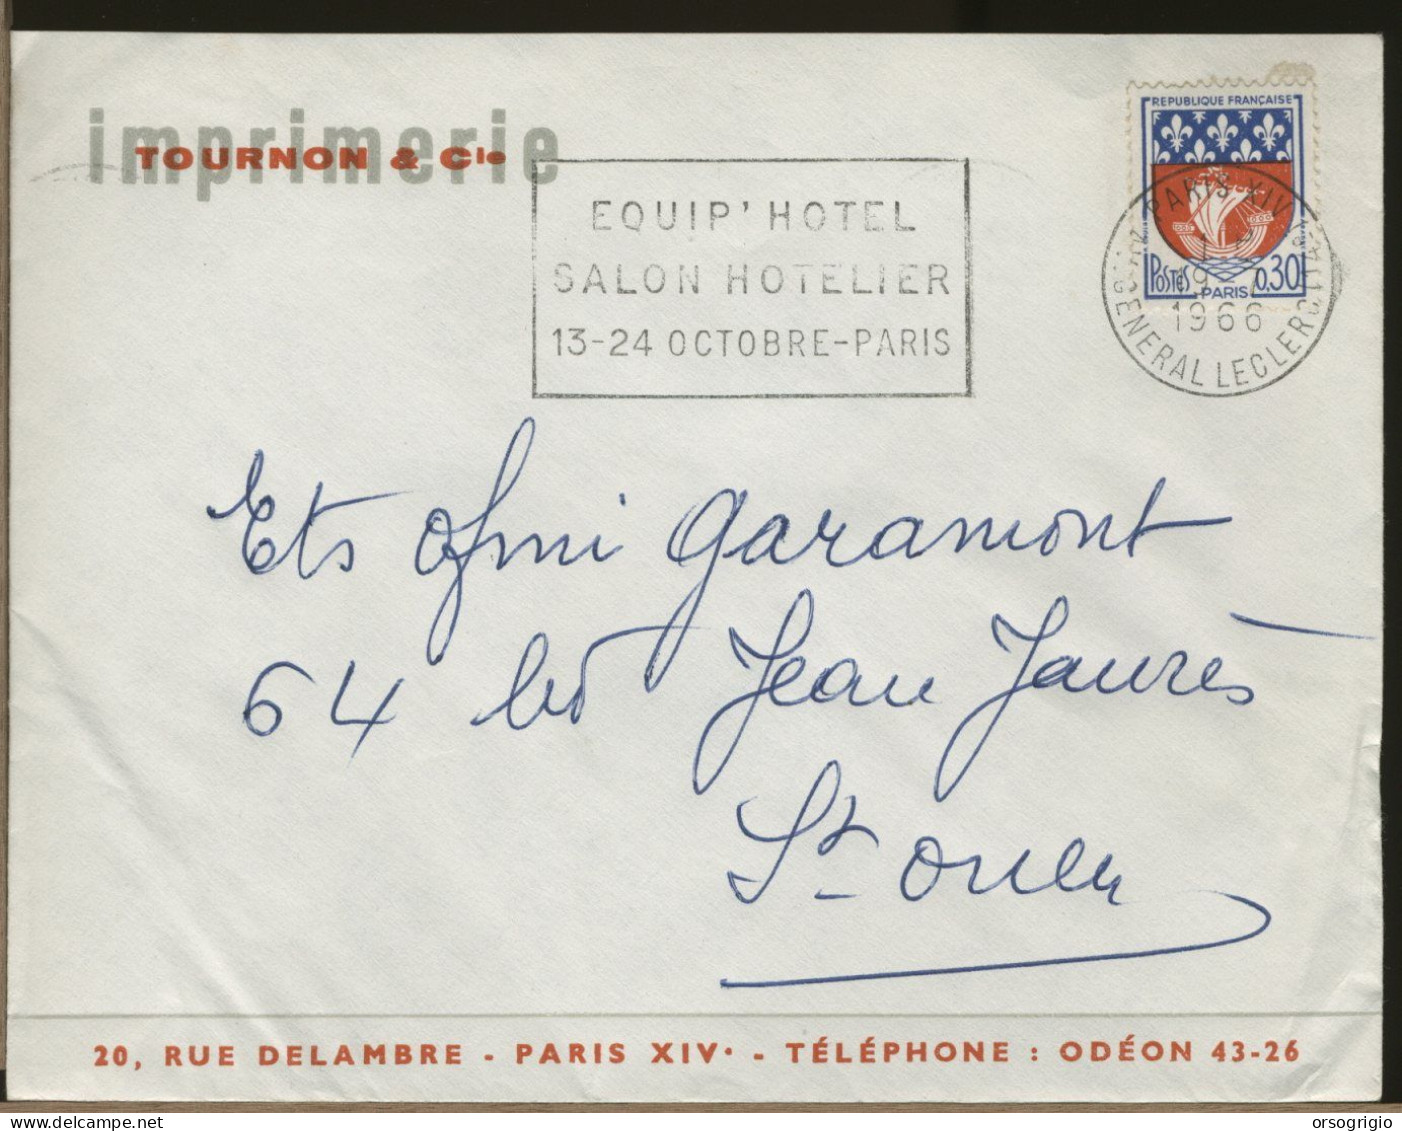 imprimerie
TOURNON & Cie
EQUIP' HOTEL
SALON HOTELIER
13-24 OCTOBRE-PARIS
REPUBLIQUE FRANÇAISE
POSTES
PARIS
0,30
PARIS XIV
1966
GENERAL LECLERC
Ets Ofmi Garamont
64 bd Jean Jaurès
St-Ouen
20, RUE DELAMBRE - PARIS XIVe - TÉLÉPHONE : ODÉON 43-26
delcampe.net
orsogrigio